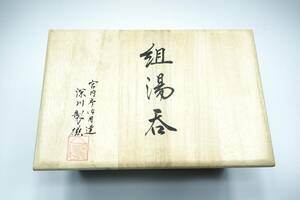 組湯呑
宮内庁御用達
深川製磁